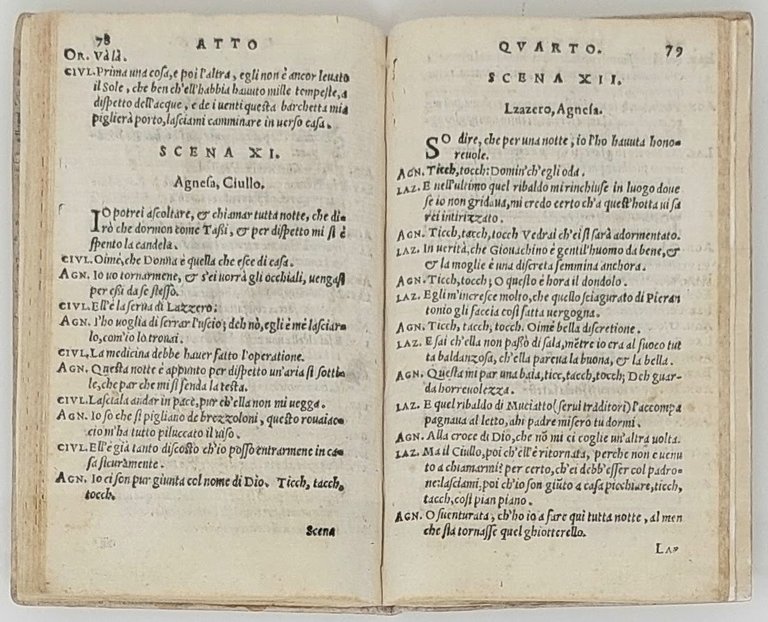 78
ATTO
OR. Và là.
CIVL. Prima una cosa, e poi l'altra, egli non è ancor leuato
il Sole, che ben ch'ell'habbia hauuto mille tempeste, a
dispetto dell'acque, e de i uenti questa barchetta mia
piglierà porto, lasciami camminare in uerso casa.
SCENA XI.
Agnesa, Ciullo.
IO potrei ascoltare, & chiamar tutta notte, che di-
rò che dormon come Tassi, & per dispetto mi si è
spento la candela.
CIVL. Oimè, che Donna è quella che esce di casa.
AGN. Io uo tornarmene, & s'ei uorrà gli occhiali, uengasi
per essi da se stesso.
CIVL. Ell'è la serua di Lazzero:
AGN. I'ho uoglia di serrar l'uscio; deh nò, egli è mè lasciar-
lo, com'io lo trouai.
CIVL, La medicina debbe hauer fatto l'operatione.
AGN. Questa notte è appunto per dispetto un'aria sì sotti-
le, che par che mi si fenda la testa.
CIVL. Lasciala andar in pace, pur ch'ella non mi uegga.
AGN. Io so che si pigliano de brezzoloni, questo rouaiac-
cio m'ha tutto piluccato il uiso.
CIVL. Ell'è già tanto discosto ch'io posso entrarmene in ca-
sa sicuramente.
AGN. Io ci son pur giunta col nome di Dio. Ticch, tacch,
tocch.
Scena
QVARTO.
79
SCENA XII.
Lzazero, Agnesa.
SO dire, che per una notte, io l'ho hauuta hono-
reuole.
AGN. Ticch, tocch: Domin'ch'egli oda.
LAZ. E nell'ultimo quel ribaldo mi rinchiuse in luogo doue
se io non gridaua, mi credo certo ch'a quest'hotta ui sa
rei intirizzato.
AGN. Ticch, tacch, tocch Vedrai ch'ei si sarà adormentato.
LAZ. In uerità, che Giouachino è gentil'huomo da bene, &
& la moglie è una discreta femmina anchora.
AGN. Ticch, tocch; O questo è hora il dondolo.
LAZ. Egli m'incresce molto, che quello sciagurato di Pieran
tonio gli faccia così fatta uergogna.
AGN. Ticch, tacch, tocch. Oimè bella discretione.
LAZ. E sai ch'ella non passò di sala, mẽtre io era al fuoco tut
ta baldanzosa, ch'ella pareua la buona, & la bella.
AGN. Questa mi par una baia, ticc, tacch, tocch; Deh guar-
da horreuolezza.
LAZ. E quel ribaldo di Muciatto (serui traditori) l'accompa
pagnaua al letto, ahi padre misero tu dormi.
AGN. Alla croce di Dio, che nõ mi ci coglie un'altra uolta.
LAZ. Ma il Ciullo, poi ch'ell'è ritornata, perche non e uenu
to a chiamarmi? per certo, ch'ei debb'esser col padro-
ne: lasciami, poi ch'io son giũto a casa picchiare, ticch,
tacch, così pian piano.
AGN. O suenturata, ch'ho io a fare qui tutta notte, al men
che sia tornasse quel ghiotterello.
LAZ